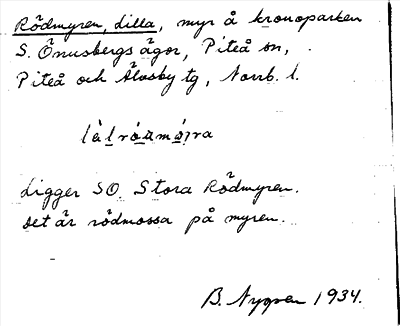 Rödmyren, Lilla, myr å kronoparken
S. Önusbergs ägor, Piteå sn,
Piteå och Älvsby tg, Norrb. l.
Ligger SO. Stora Rödmyren.
Det är rödmossa på myren.
B. Nygren 1934.